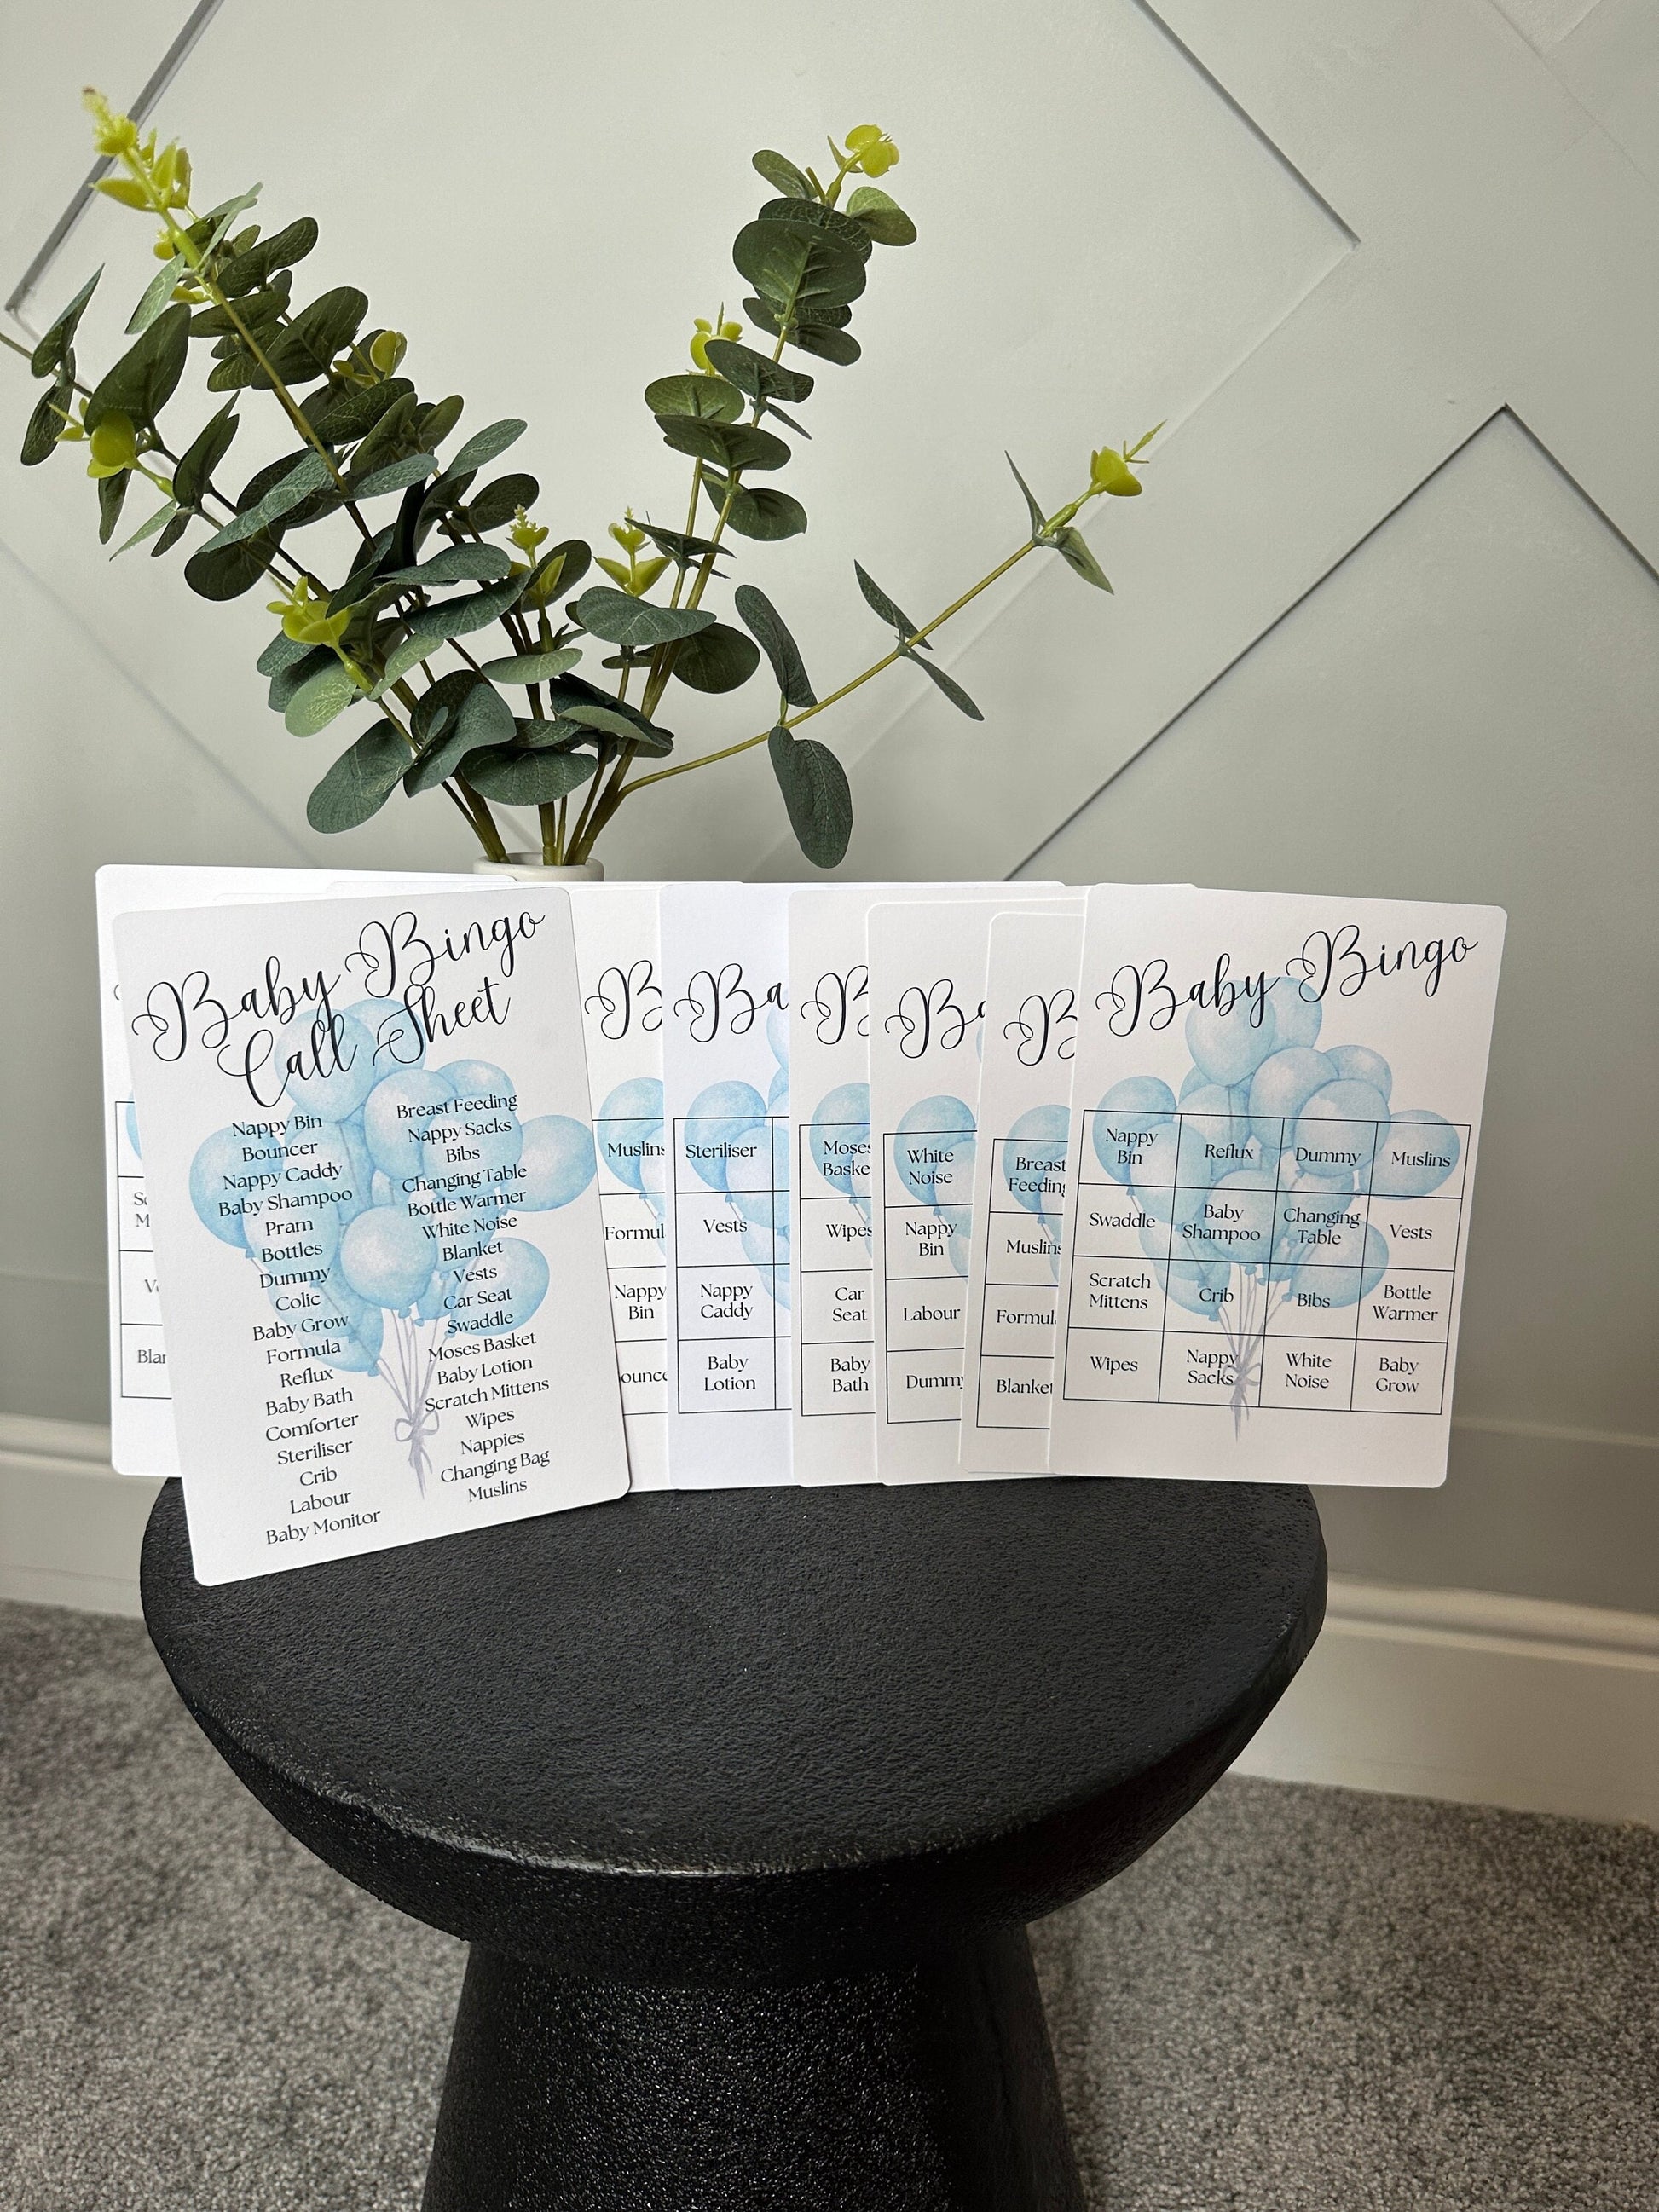 Baby Bingo
Call Sheet
Nappy Bin
Bouncer
Nappy Caddy
Baby Shampoo
Pram
Bottles
Dummy
Colic
Baby Grow
Formula
Reflux
Baby Bath
Comforter
Steriliser
Crib
Labour
Baby Monitor
Breast Feeding
Nappy Sacks
Bibs
Changing Table
Bottle Warmer
White Noise
Blanket
Vests
Car Seat
Swaddle
Moses Basket
Baby Lotion
Scratch Mittens
Wipes
Nappies
Changing Bag
Muslins
Muslins
Nappy
Bin
Steriliser
Vests
Nappy
Caddy
Baby
Lotion
Moses
Wipes
Car
Seat
Baby
Bath
White
Noise
Nappy
Bin
Labour
Dummy
Breast
Muslins
Blanket
Baby Bingo
Nappy
Bin
Reflux
Dummy
Muslins
Swaddle
Baby
Shampoo
Changing
Table
Vests
Scratch
Mittens
Crib
Bibs
Bottle
Warmer
Wipes
Nappy
Sacks
White
Noise
Baby
Grow